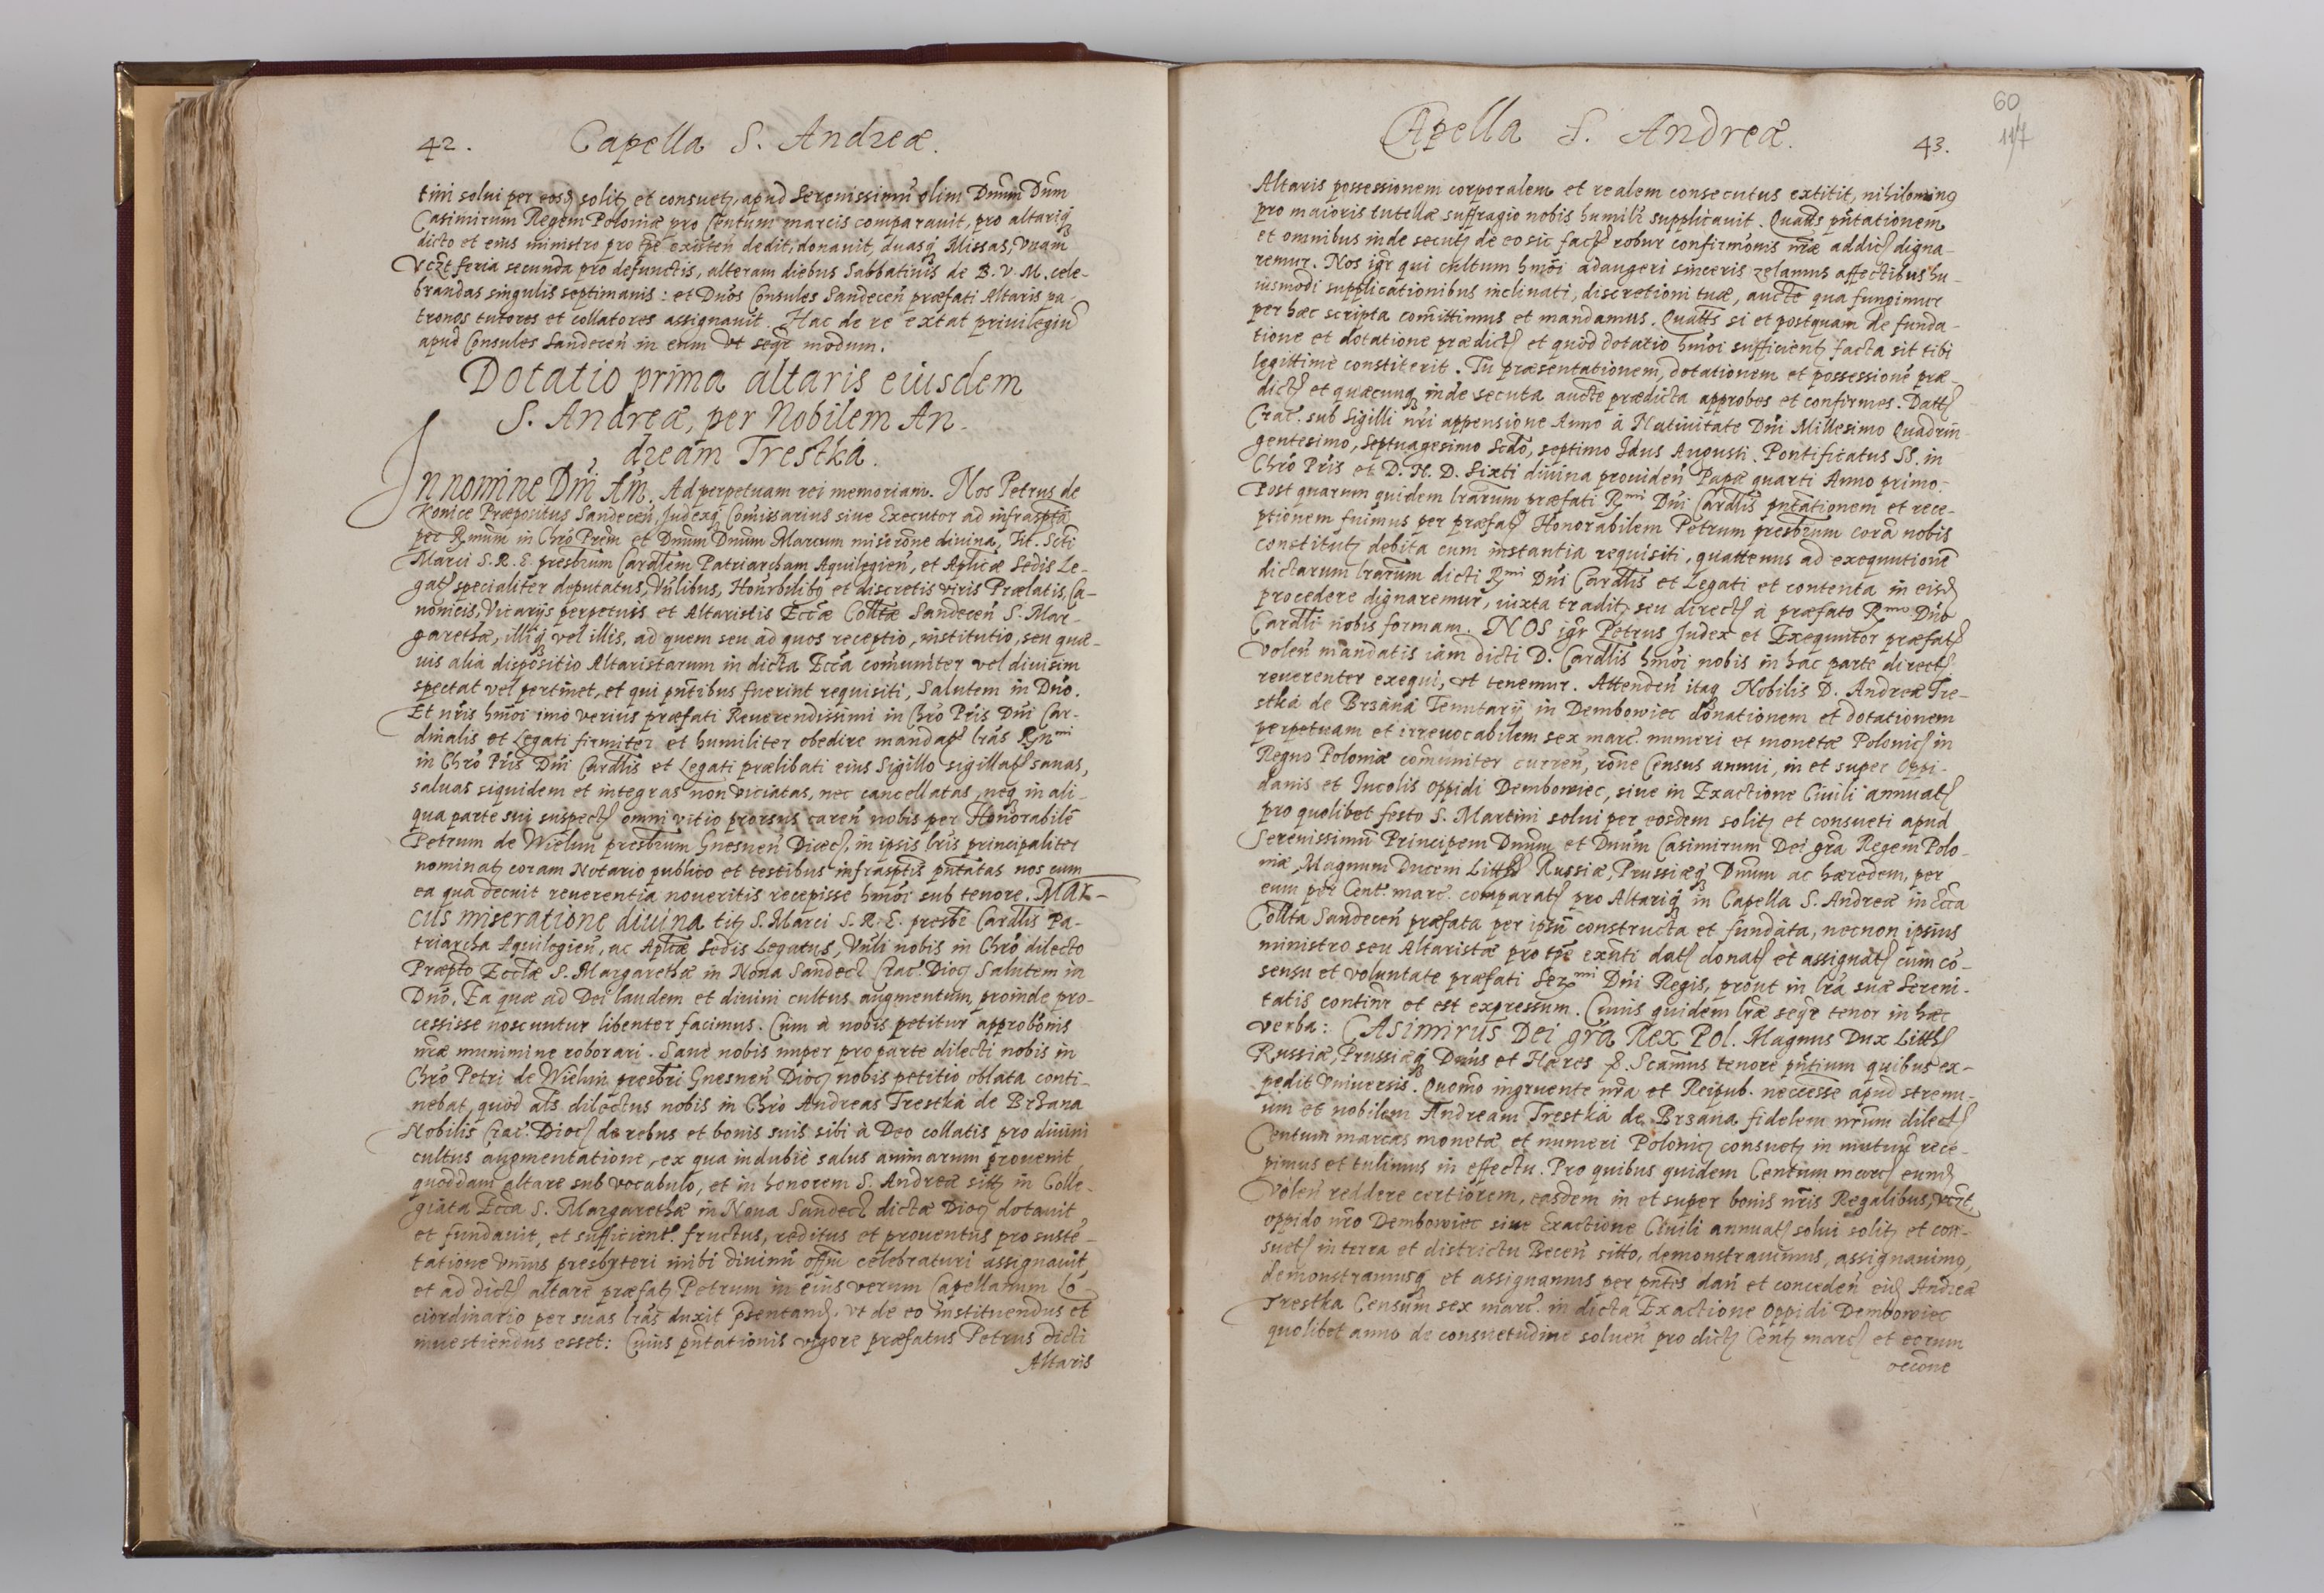 42. Capella S. Andreæ.
tini solui per eosd solitȝ et consuetȝ, apud Serenissimū olim Dnum Dnm
Casimirum Regem Poloniæ pro Centum marcis comparauit, pro altariqȝ
dicto et eius ministro pro tpē existen̄ dedit, donauit, duasqȝ Missas, Vnam
Vczt feria secunda pro defunctis, alteram diebus Sabbatinis de B. V. M. cele-
brandas singulis septimanis: et Dnos Consules Sandecen̄ præfati Altaris pa-
tronos tutores et collatores assignauit. Hac de re extat priuilegiū
apud Consules Sandecen̄ in eum vt seqr modum.
Dotatio prima altaris eiusdem
S. Andreæ, per Nobilem An-
dream Trestka.
In nomine Dni Am. Ad perpetuam rei memoriam. Nos Petrus de
Konice Præpositus Sandecen̄, Judexqȝ Comissarius siue Executor ad infraspta
per Rmum in Chro Prem et Dnum Dnum Marcum miserone diuina, Tit. Scti
Marci S. R. E. presbrum Cardlem Patriarcham Aquilegien̄, et Aplicæ Sedis Le-
gatȝ specialiter deputatus, Vnlibus, Honrbilibȝ et discretis viris Prælatis, Ca-
nonicis, Vicarijs perpetuis et Altaristis Eccæ Colltæ Sandecen̄ S. Mar-
garethæ, illiqȝ vel illis, ad quem seu ad quos receptio, institutio, seu quæ-
uis alia dispositio Altaristarum in dicta Ecca comuniter vel diuisim
spectat vel pertinet, et qui pntibus fuerint requisiti, Salutem in Dno.
Et nris hmoi imo verius præfati Reuerendissimi in Chro Pris Dni Car-
dinalis et Legati firmiter et humiliter obedire mandatȝ lras Rmi
in Chro Pris Dni Cardlis et Legati prælibati eius Sigillo sigillatȝ sanas,
saluas siquidem et integras non viciatas, nec cancellatas, neqȝ in ali-
qua parte sui suspectȝ omni vitio prorsus caren̄ nobis per Honorabilē
Petrum de Wielun presbrum Gnesnen̄ Diœcȝ, in ipsis lris principaliter
nominatȝ coram Notario publico et testibus infrasptis pntatas nos cum
ea qua decuit reuerentia noueritis recepisse hmoi sub tenore. Mar-
cus miseratione diuina titȝ S. Marci S. R. E. presbr Cardlis Pa-
triarcha Aquilegien̄, ac Aplicæ Sedis Legatus, Vnli nobis in Chro dilecto
Præpto Ecclæ S. Margarethæ in Noua Sandecȝ Crac. Diocȝ Salutem in
Dno. Ea quæ ad Dei laudem et diuini cultus augmentum, proinde pro-
cessisse noscuntur libenter facimus. Cùm à nobis petitur approbonis
nræ munimine roborari. Sanè nobis nuper pro parte dilecti nobis in
Chro Petri de Wielun presbri Gnesnen̄ Diocȝ nobis petitio oblata conti-
nebat, quòd als dilectus nobis in Chro Andreas Trestka de Brzana
Nobilis Crac. Diocȝ de rebus et bonis suis sibi à Deo collatis pro diuini
cultus augmentatione, ex qua indubiè salus animarum prouenit,
quoddam altare sub vocabulo, et in honorem S. Andreæ sitȝ in Colle-
giata Ecca S. Margarethæ in Noua Sandecȝ dictæ Diocȝ dotauit
et fundauit, et sufficient. fructus, reditus et prouentus pro suste-
tatione vnius presbyteri inibi diuinū offiū celebraturi assignauit,
et ad dictȝ altare præfatȝ Petrum in eius verum Capellanum Lo-
ciordinario per suas lras duxit psentandȝ, vt de eo instituendus et
inuestiendus esset: Cuius pntationis vigore præfatus Petrus dicti
Altaris
60
117
Capella S. Andreæ. 43.
Altaris possessionem corporalem et realem consecutus extitit, nihilominȝ
pro maioris tutellæ suffragio nobis humilr supplicauit. Quatts pntationem
et omnibus inde secutȝ de eo sic factȝ robur confirmonis nræ addicȝ digna-
remur. Nos igr qui cultum hmoi adaugeri sinceris zelamus affectibus hu-
iusmodi supplicationibus inclinati, discretioni tuæ, aucte qua fungimur
per hæc scripta comittimus et mandamus. Quatts si et postquam de funda-
tione et dotatione prædictȝ et quòd dotatio hmoi sufficientȝ facta sit tibi
legittimè constiterit. Tu præsentationem, dotationem et possessionē præ-
dictȝ et quæcunqȝ inde secuta aucte prædicta approbes et confirmes. Dattȝ
Crac. sub Sigilli nri appensione Anno à Natiuitate Dni Millesimo Quadrin-
gentesimo, Septuagesimo Scdo, septimo Idus Augusti. Pontificatus SS. in
Chro Pris et D. N. D. Sixti diuina prouiden̄ Papæ quarti Anno primo.
Post quarum quidem lrarum præfati Rmi Dni Cardlis pntationem et rece-
ptionem fuimus per præfatȝ Honorabilem Petrum presbrum corā nobis
constitutȝ debita cum instantia requisiti, quattenus ad exequutionē
dictarum lrarum dicti Rmi Dni Cardlis et Legati et contenta in eisd
procedere dignaremur, iuxta traditȝ seu directȝ à præfato Rmo Dno
Cardli nobis formam. NOS igr Petrus Judex et Exequutor præfatȝ
volen̄ mandatis iam dicti D. Cardlis hmoi nobis in hac parte directȝ
reuerenter exequi, vt tenemur. Attenden̄ itaqȝ Nobilis D. Andreæ Tre-
stka de Brzana Tenutarij in Dembowiec donationem et dotationem
perpetuam et irreuocabilem sex marc. numeri et monetæ Polonicȝ in
Regno Poloniæ comuniter curren̄, rone Census annui, in et super Oppi-
danis et Incolis oppidi Dembowiec, siue in Exactione Ciuili annuatȝ
pro quolibet festo S. Martini solui per eosdem solitȝ et consueti apud
Serenissimū Principem Dnum et Dnum Casimirum Dei gra Regem Polo-
niæ, Magnum Ducem Litthȝ Russiæ, Prussiæqȝ Dnum ac hæredem, per
eum per Cent. marc. comparatȝ pro Altariqȝ in Capella S. Andreæ in Ecca
Collta Sandecen̄ præfata per ipsū constructa et fundata, necnon ipsius
ministro seu Altaristæ pro tpē exnti datȝ donatȝ et assignatȝ cum cō-
sensu et voluntate præfati Sermi Dni Regis, prout in lra suæ Sereni-
tatis continr et est expressum. Cuius quidem lræ seqr tenor in hæc
verba: Casimirus Dei gra Rex Pol. Magnus Dux Litthȝ
Russiæ, Prussiæqȝ Dnus et Hæres &. Scamus tenore pntium quibus ex-
pedit Vniuersis. Quomo ingruente nra et Reipub. neccesse apud strenu-
um et nobilem Andream Trestka de Brzana fidelem nrum dilectȝ
Centum marcas monetæ et numeri Polonicȝ consuetȝ in mutuū rece-
pimus et tulimus in effectu. Pro quibus quidem Centum marcȝ eund
volen̄ reddere certiorem, easdem in et super bonis nris Regalibus, vczt
oppido nro Dembowiec siue Exactione Ciuili annuatȝ solui solitȝ et con-
suetȝ in terra et districtu Becen̄ sitto, demonstrauimus, assignauimȝ,
demonstramusqȝ et assignamus per pntes dan̄ et conceden̄ eid Andreæ
Trestka Censum sex marc. in dicta Exactione oppidi Dembowiec
quolibet anno de consuetudine soluen̄ pro dictȝ Centȝ marcȝ et eorum
occone